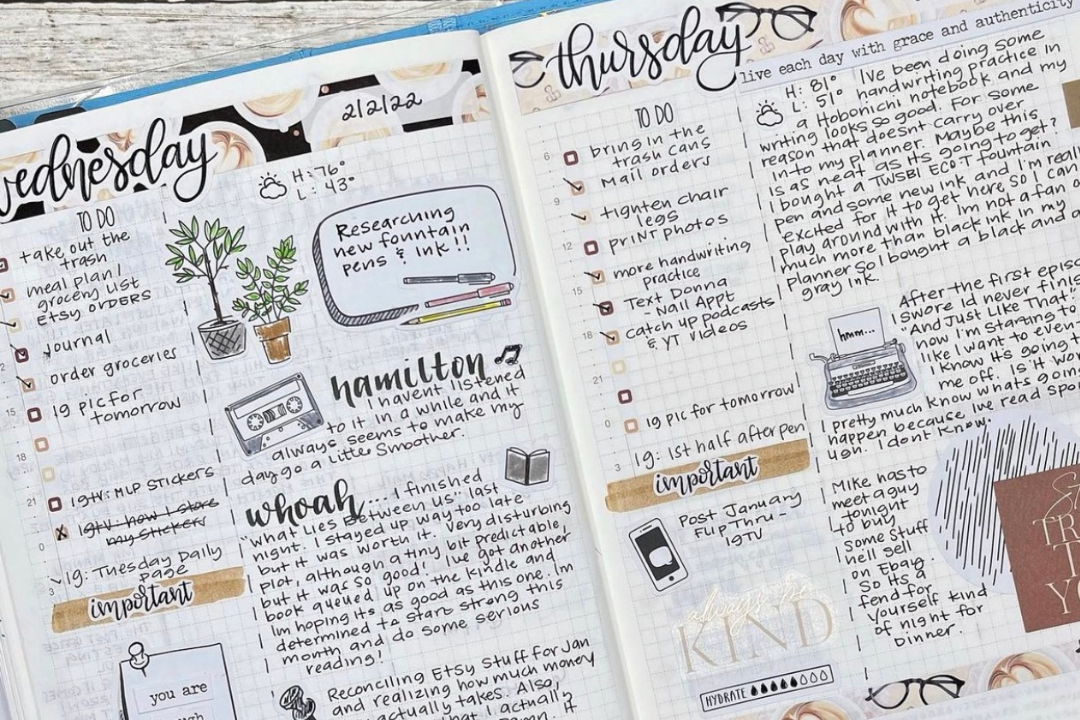 wednesday
2/2/22
H: 76°
L: 43°
TO DO
take out the
trash
meal plan/
grocery list
Etsy ORDERS
Journal
order groceries
ig pic for
tomorrow
igtv: MLP Stickers
igtv: how I store
my stickers
ig: Tuesday Daily
page
important
you are
Researching
new fountain
pens & ink!!
hamilton
I havent listened
to it in a while and it
always seems to make my
day go a little smoother.
whoah.... I finished
"What Lies Between Us" last
night. I stayed up way too late
but it was worth it. Very disturbing
plot, although a tiny bit predictable,
but it was so good! I've got another
book queued up on the kindle and
Im hoping its as good as this one. Im
determined to start strong this
month and do some serious
reading!
Reconciling Etsy stuff for Jan
and realizing how much money
actually takes. Also,
that I actually
thursday
live each day with grace and authenticity
TO DO
bring in the
trash cans
Mail orders
tighten chair
legs
print Photos
more handwriting
practice
Text Donna
- Nail Appt
catch up podcasts
& YT videos
ig pic for tomorrow
ig: 1st half after pen
important
Post January
Flip Thru -
IGTV
always be
KIND
HYDRATE
H: 81°
L: 51°
I've been doing some
handwriting practice in
a Hobonichi notebook and my
writing looks so good. For some
reason that doesnt carry over
into my planner. Maybe this
is as neat as its going to get?
I bought a TWSBI ECO T fountain
pen and some new ink and I'm really
excited for it to get here so I can
play around with it. Im not a fan of
much more than black ink in my
planner so I bought a black and a
gray ink.
hmm...
After the first episo
swore Id never finis
"And Just Like That"
now I'm starting to
like I want to even
I know its going t
me off. Is it wor
I pretty much know whats goin
happen because Ive read spo
ugh. I dont know.
Mike has to
meet a guy
tonight
to buy
some stuff
he'll sell
on Ebay.
So its a
fend for
yourself kind
of night for
dinner.